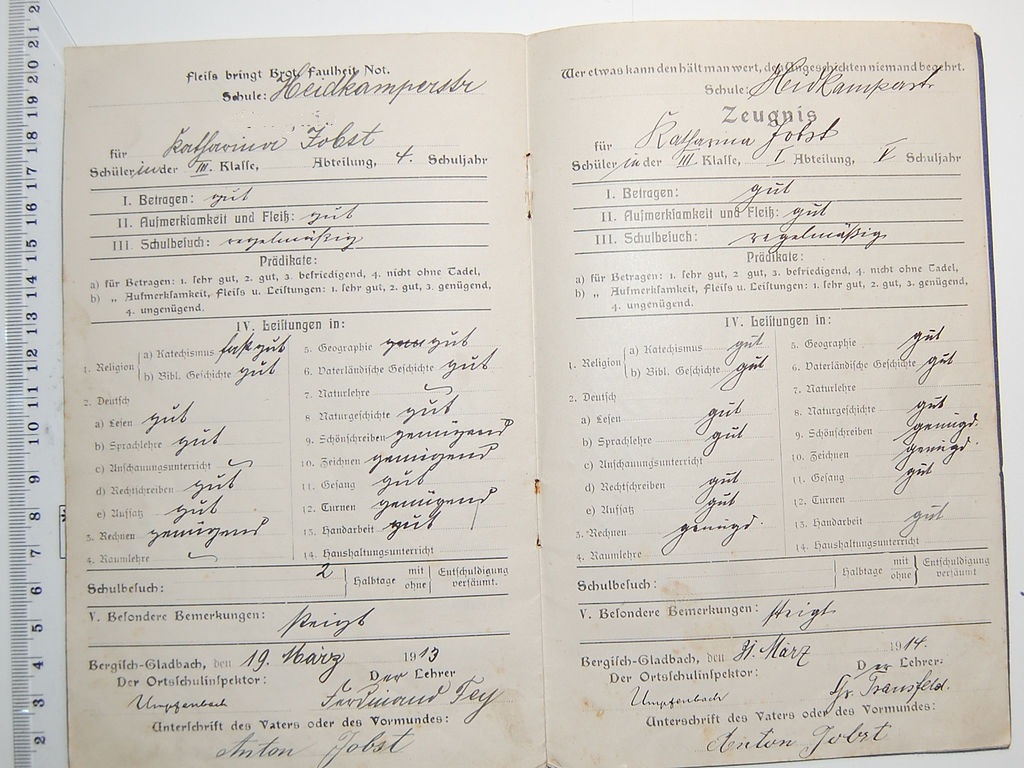 Fleiss bringt Brot, Faulheit Not.
Schule: Heidkamperstr
für Katharina Jobst
Schülerin der III. Klasse, Abteilung, 4. Schuljahr
I. Betragen: gut
II. Aufmerksamkeit und Fleiß: gut
III. Schulbesuch: regelmäßig
Prädikate:
a) für Betragen: 1. sehr gut, 2. gut, 3. befriedigend, 4. nicht ohne Tadel,
b) „ Aufmerksamkeit, Fleiss u. Leistungen: 1. sehr gut, 2. gut, 3. genügend,
4. ungenügend.
IV. Leistungen in:
1. Religion
a) Katechismus fast gut
b) Bibl. Geschichte gut
2. Deutsch
a) Lesen gut
b) Sprachlehre gut
c) Anschauungsunterricht
d) Rechtschreiben gut
e) Aufsatz gut
3. Rechnen genügend
4. Raumlehre
5. Geographie gut
6. Vaterländische Geschichte gut
7. Naturlehre
8. Naturgeschichte gut
9. Schönschreiben genügend
10. Zeichnen genügend
11. Gesang gut
12. Turnen genügend
13. Handarbeit gut
14. Haushaltungsunterricht
Schulbesuch: 2 Halbtage mit ohne Entschuldigung versäumt.
V. Besondere Bemerkungen: steigt
Bergisch-Gladbach, den 19. März 1913
Der Ortsschulinspektor: Der Lehrer
Umpfenbach Ferdinand Fey
Unterschrift des Vaters oder des Vormundes:
Anton Jobst
Wer etwas kann den hält man wert, den Ungeschickten niemand begehrt.
Schule: Heidkamperstr
Zeugnis
für Katharina Jobst
Schülerin der III Klasse, I Abteilung, V Schuljahr
I. Betragen: gut
II. Aufmerksamkeit und Fleiß: gut
III. Schulbesuch: regelmäßig
Prädikate:
a) für Betragen: 1. sehr gut, 2 gut, 3. befriedigend, 4. nicht ohne Tadel,
b) „ Aufmerksamkeit, Fleiss u. Leistungen: 1. sehr gut, 2. gut, 3. genügend,
4. ungenügend.
IV. Leistungen in:
1. Religion
a) Katechismus gut
b) Bibl. Geschichte gut
2. Deutsch
a) Lesen gut
b) Sprachlehre gut
c) Anschauungsunterricht
d) Rechtschreiben gut
e) Aufsatz gut
3. Rechnen genügd.
4. Raumlehre
5. Geographie gut
6. Vaterländische Geschichte gut
7. Naturlehre
8. Naturgeschichte gut
9. Schönschreiben genügd.
10. Zeichnen genügd
11. Gesang gut
12. Turnen
13. Handarbeit gut
14. Haushaltungsunterricht
Schulbesuch: Halbtage mit ohne Entschuldigung versäumt.
V. Besondere Bemerkungen: steigt
Bergisch-Gladbach, den 31. März 1914.
Der Ortsschulinspektor: Der Lehrer:
Umpfenbach Transfeld.
Unterschrift des Vaters oder des Vormundes:
Anton Jobst
2 3 4 5 6 7 8 9 10 11 12 13 14 15 16 17 18 19 20 21 2